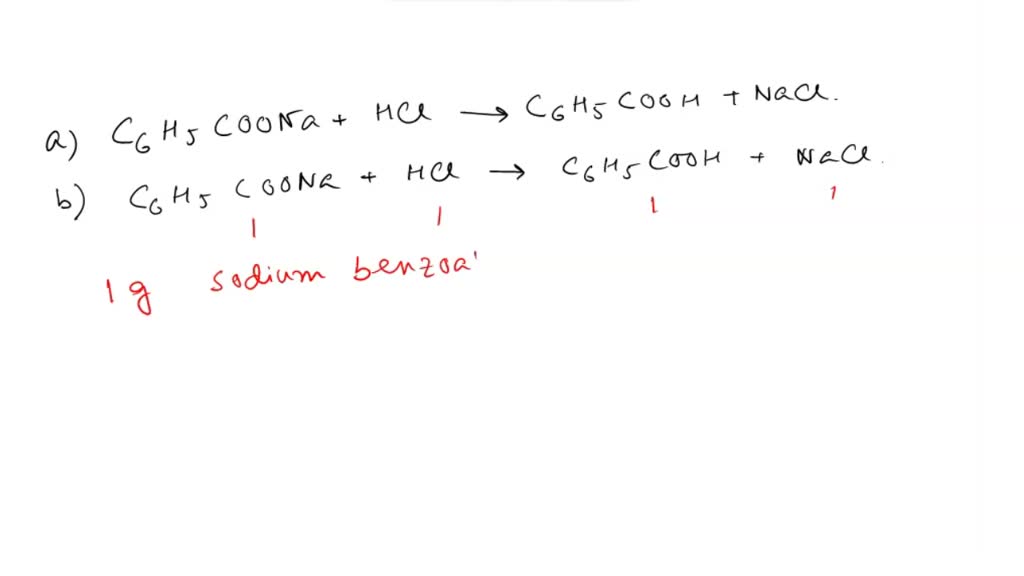 a) C6H5COONa + HCl → C6H5COOH + NaCl.
b) C6H5COONa + HCl → C6H5COOH + NaCl.
1 1 1 1
1 g sodium benzoa'